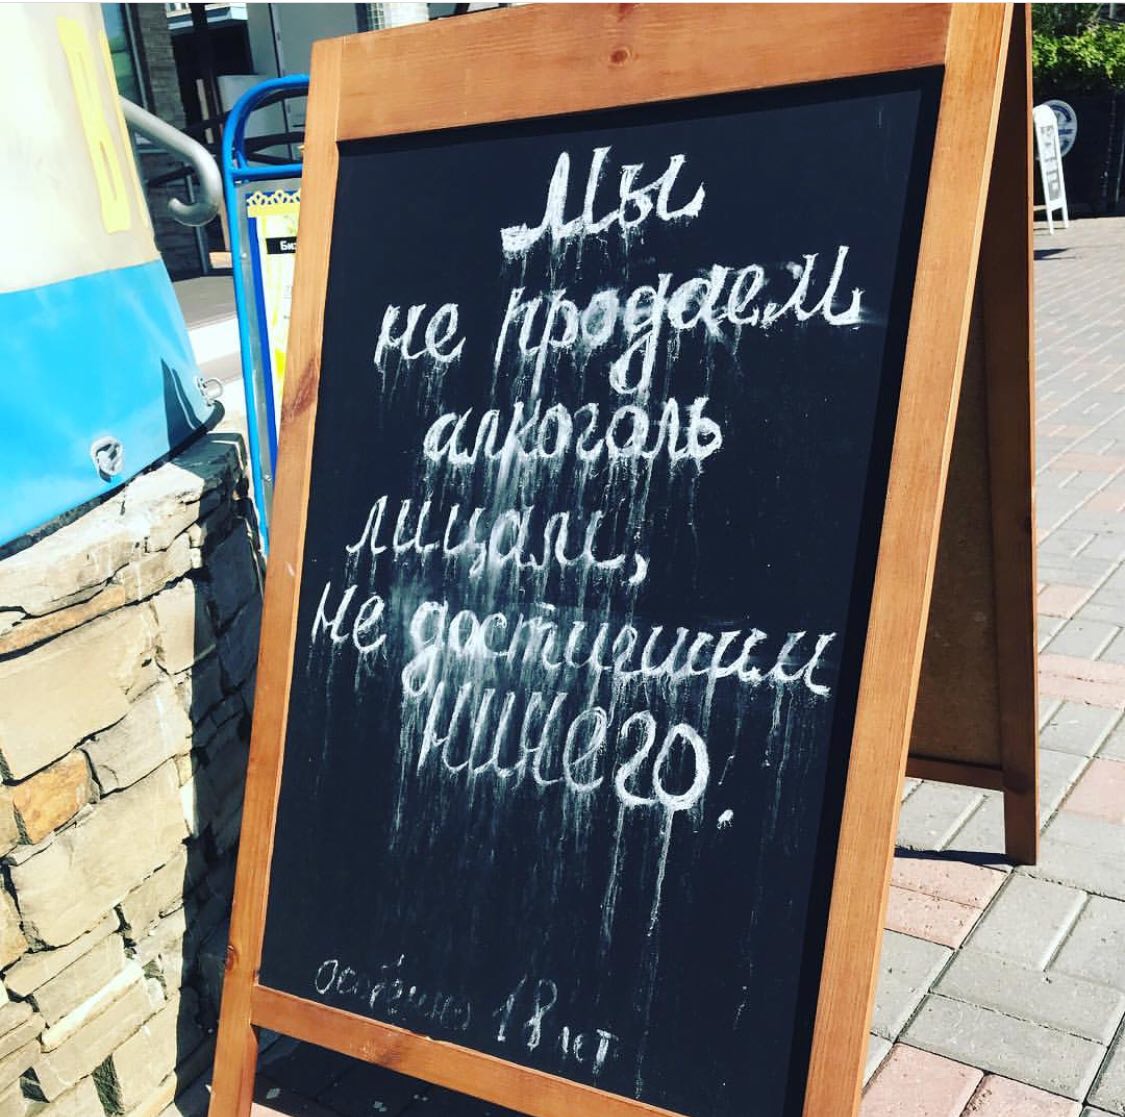 Мы
не продаем
алкоголь
лицам,
не достигшим
ничего.
18 лет